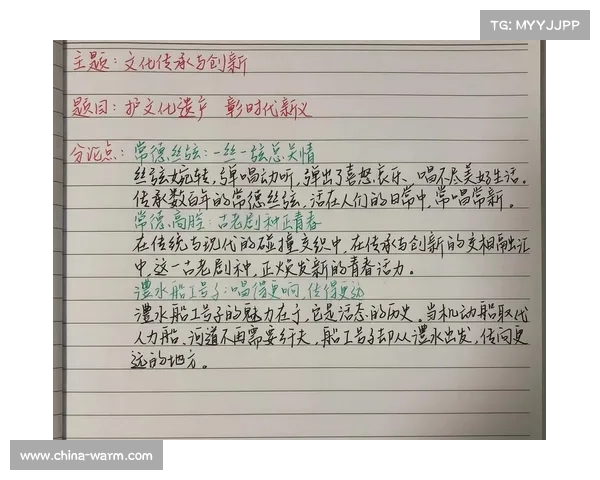 TG: MYYJJPP
主题：文化传承与创新
题目：护文化遗产 彰时代新义
分论点：常德丝弦：一丝一弦总关情
丝弦婉转，弹唱动听，弹出了喜怒哀乐、唱不尽美好生活。
传承数百年的常德丝弦，活在人们的日常中，常唱常新。
常德高腔：古老剧种正青春
在传统与现代的碰撞交织中，在传承与创新的交相融汇
中，这一古老剧种，正焕发新的青春活力。
澧水船工号子：唱得更响，传得更远
澧水船工号子的魅力在于，它是活态的历史。当机动船取代
人力船、河道不再需要纤夫，船工号子却从澧水出发，传向更
远的地方。
www.china-warm.com